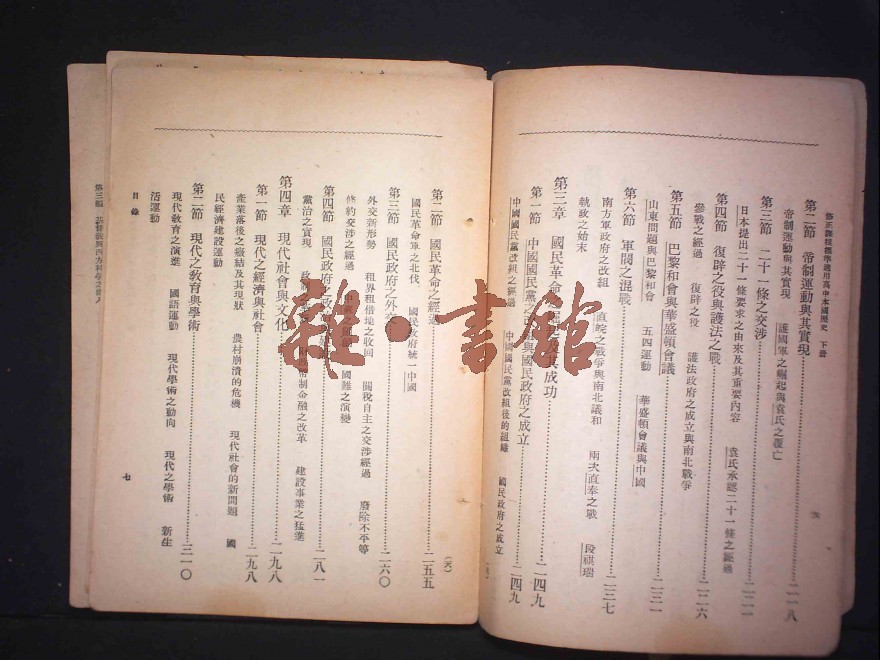 修正課程標準適用高中本國歷史 下冊
第二節 帝制運動與其實現……二一八
帝制運動與其實現 護國軍之崛起與袁氏之覆亡
第三節 二十一條之交涉
日本提出二十一條要求之由來及其重要內容 袁氏承認二十一條之經過
第四節 復辟之役與護法之戰……二二六
參戰之經過 復辟之役 護法政府之成立與南北戰爭
第五節 巴黎和會與華盛頓會議……二三二
山東問題與巴黎和會 五四運動 華盛頓會議與中國
第六節 軍閥之混戰……二三七
南方軍政府之改組 直皖之戰爭與南北議和 兩次直奉之戰 段祺瑞
執政之始末
第三章 國民革命之經過及其成功……二四九
第一節 中國國民黨之改組與國民政府之成立……二四九
中國國民黨改組之經過 中國國民黨改組後的組織 國民政府之成立
第二節 國民革命之經過……二五五
國民革命軍之北伐 國民政府統一中國
第三節 國民政府之外交……二六〇
外交新形勢 租界租借地之收回 關稅自主之交涉經過 廢除不平等
條約交涉之經過 國難之演變
第四節 國民政府之……二八一
黨治之實現 幣制金融之改革 建設事業之猛進
第四章 現代社會與文化……二九八
第一節 現代之經濟與社會……二九八
產業落後之癥結及其現狀 農村崩潰的危機 現代社會的新問題 國
民經濟建設運動
第二節 現代之教育與學術……三一〇
現代教育之演進 國語運動 現代學術之動向 現代之學術 新生
活運動
目錄
七
雜·書館